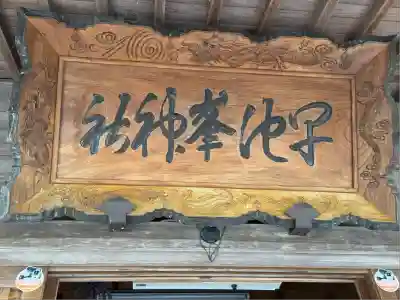 早池峯神社